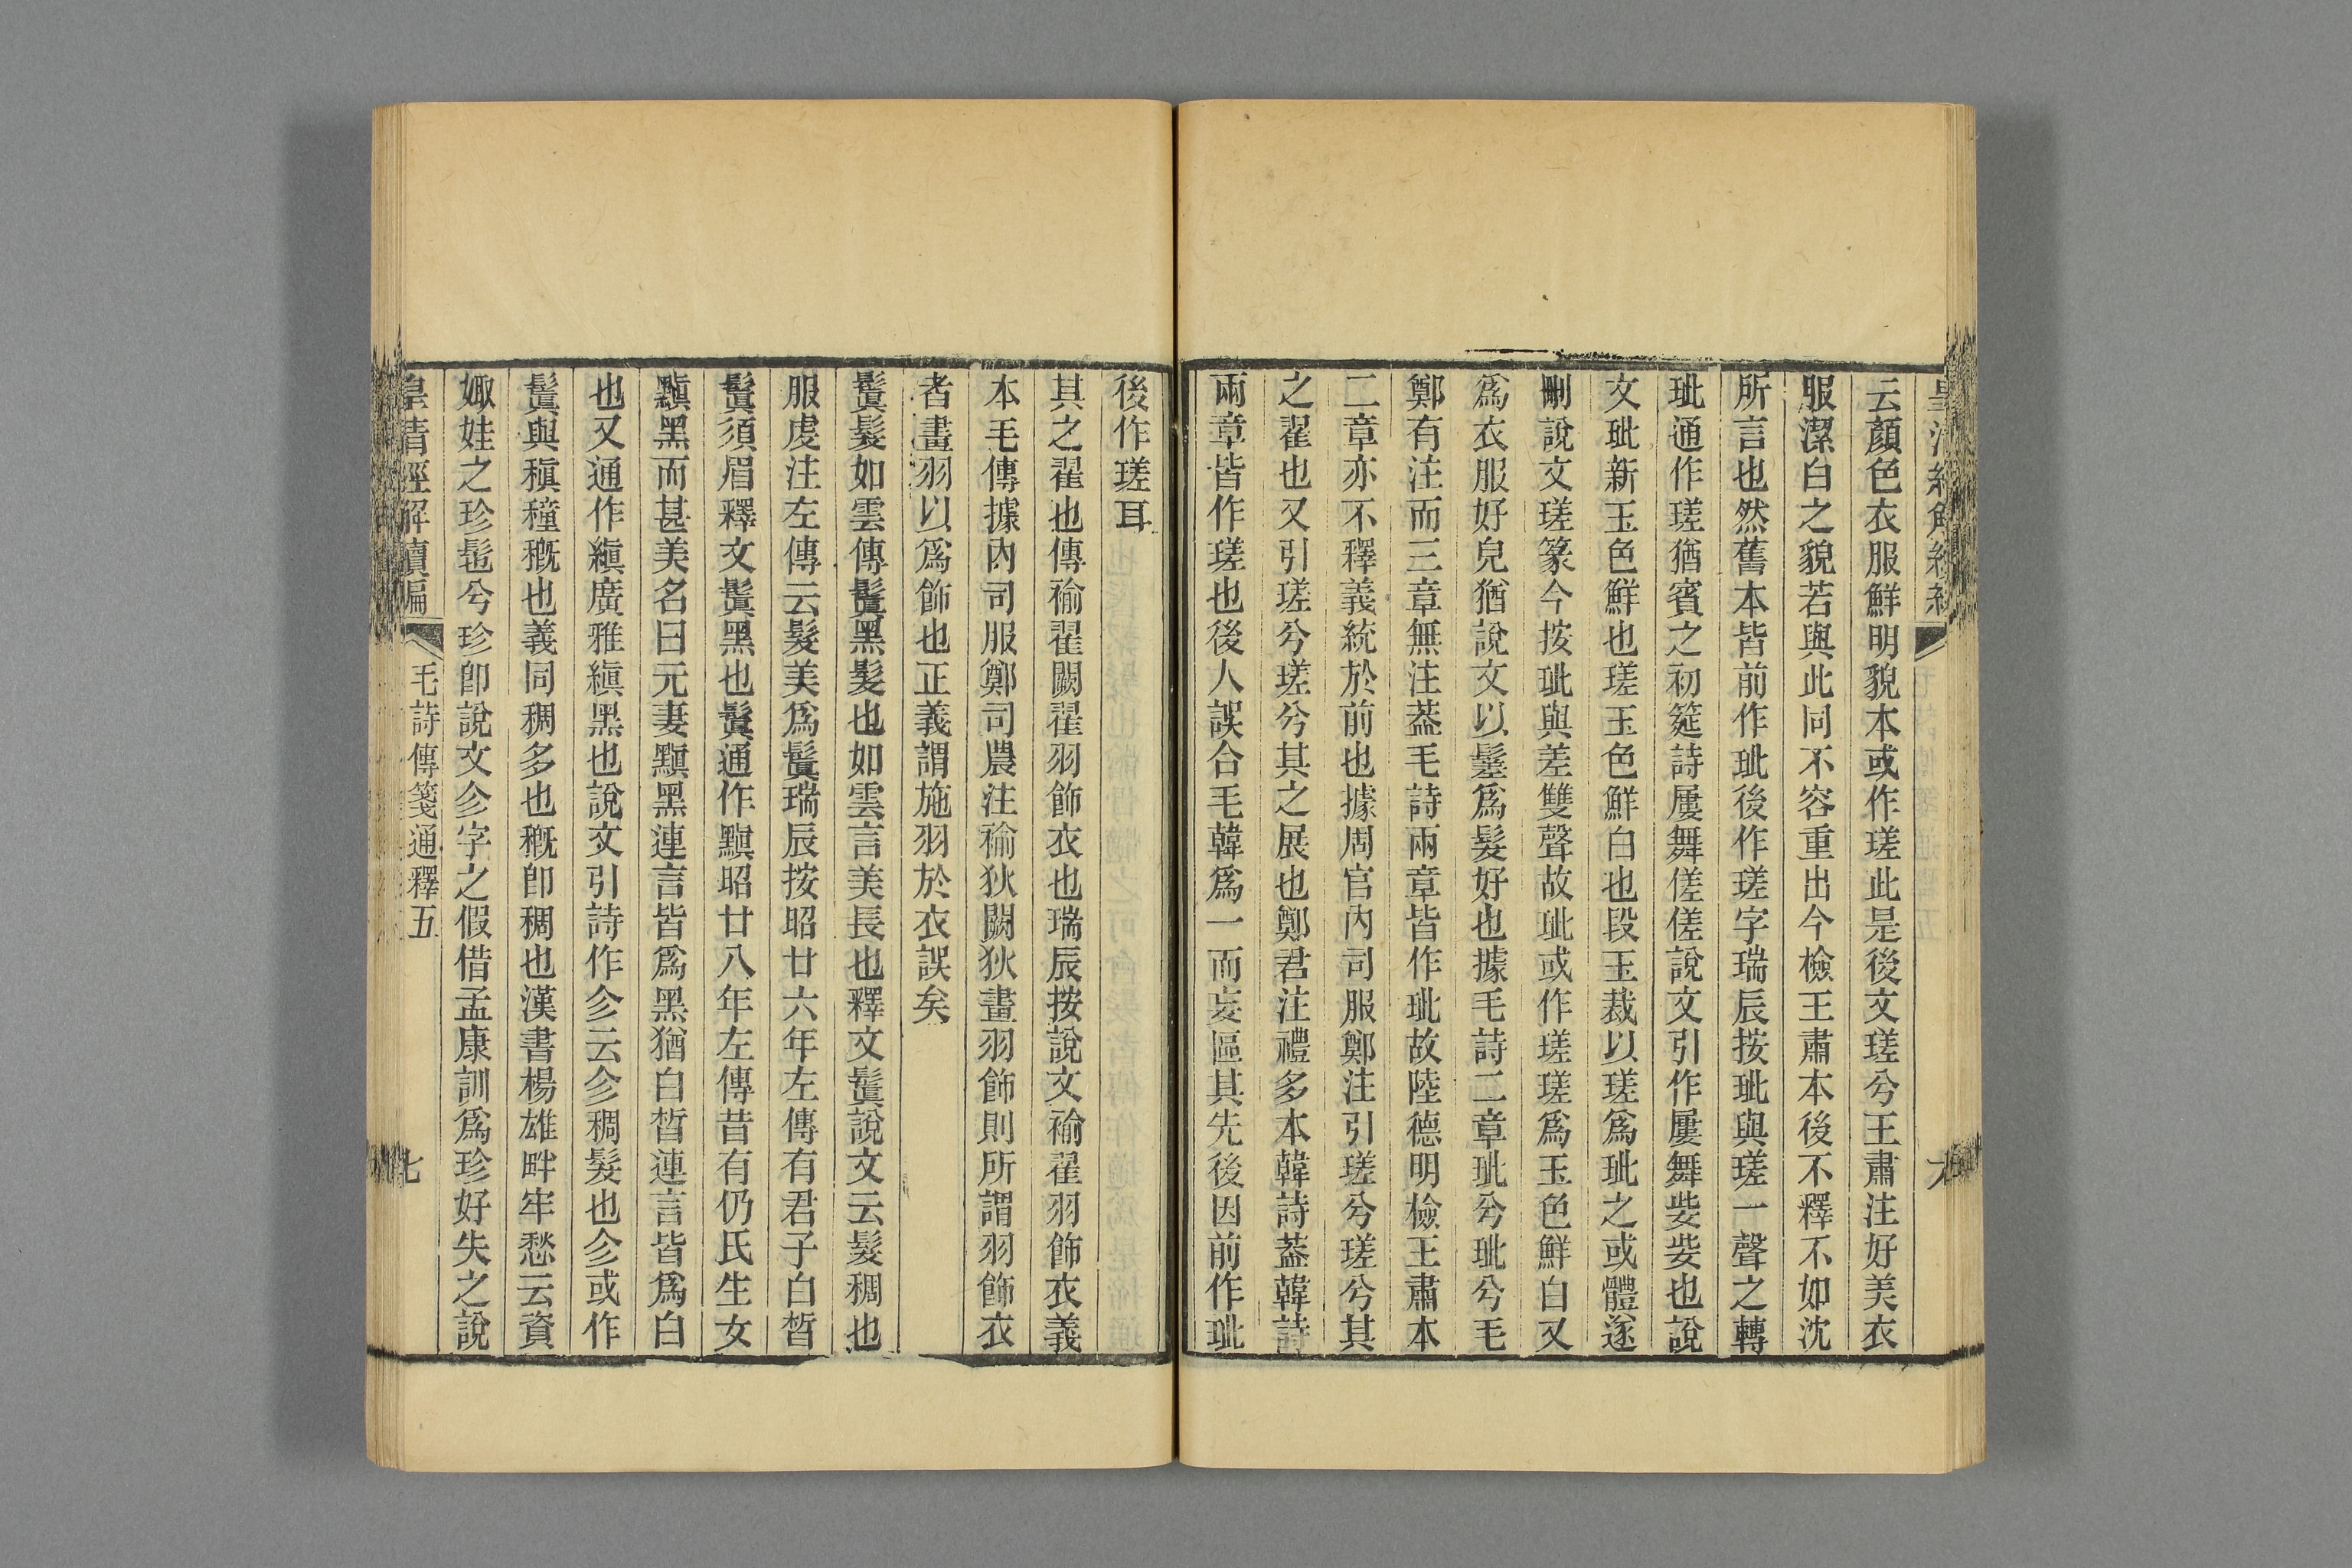 云顏色衣服鮮明貌本或作瑳此是後文瑳兮王肅注好美衣
服潔白之貌若與此同不容重出今檢王肅本後不釋不如沈
所言也然舊本皆前作玼後作瑳字瑞辰按玼與瑳一聲之轉
玼通作瑳猶賓之初筵詩屢舞傞傞說文引作屢舞姕姕也說
文玼新玉色鮮也瑳玉色鮮白也段玉裁以瑳爲玼之或體遂
刪說文瑳篆今按玼與差雙聲故玼或作瑳瑳爲玉色鮮白又
爲衣服好皃猶說文以鬊爲髮好也據毛詩二章玼兮玼兮毛
鄭有注而三章無注葢毛詩兩章皆作玼故陸德明檢王肅本
二章亦不釋義統於前也據周官內司服鄭注引瑳兮瑳兮其
之翟也又引瑳兮瑳兮其之展也鄭君注禮多本韓詩葢韓詩
兩章皆作瑳也後人誤合毛韓爲一而妄區其先後因前作玼
後作瑳耳
其之翟也傳褕翟闕翟羽飾衣也瑞辰按說文褕翟羽飾衣義
本毛傳據內司服鄭司農注褕狄闕狄畫羽飾則所謂羽飾衣
者畫羽以爲飾也正義謂施羽於衣誤矣
鬒髮如雲傳鬒黑髮也如雲言美長也釋文鬒說文云髮稠也
服虔注左傳云髮美爲鬒瑞辰按昭廿六年左傳有君子白皙
鬒須眉釋文鬒黑也鬒通作黰昭廿八年左傳昔有仍氏生女
黰黑而甚美名曰元妻黰黑連言皆爲黑猶白皙連言皆爲白
也又通作縝廣雅縝黑也說文引詩作㐱云㐱稠髮也㐱或作
鬒與稹穜穊也義同稠多也穊卽稠也漢書楊雄畔牢愁云資
娵娃之珍髢兮珍卽說文㐱字之假借孟康訓爲珍好失之說
皇清經解續編
毛詩傳箋通釋五
七